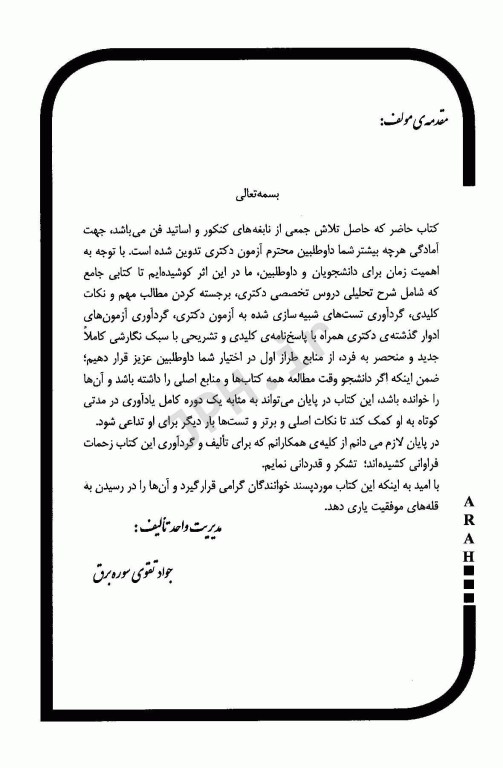 مقدمه‌ی مولف:
بسمه‌تعالی
کتاب حاضر که حاصل تلاش جمعی از نابغه‌های کنکور و اساتید فن می‌باشد، جهت
آمادگی هرچه بیشتر شما داوطلبین محترم آزمون دکتری تدوین شده است. با توجه به
اهمیت زمان برای دانشجویان و داوطلبین، ما در این اثر کوشیده‌ایم تا کتابی جامع
که شامل شرح تحلیلی دروس تخصصی دکتری، برجسته کردن مطالب مهم و نکات
کلیدی، گردآوری تست‌های شبیه سازی شده به آزمون دکتری، گردآوری آزمون‌های
ادوار گذشته‌ی دکتری همراه با پاسخ‌نامه‌ی کلیدی و تشریحی با سبک نگارشی کاملاً
جدید و منحصر به فرد، از منابع طراز اول در اختیار شما داوطلبین عزیز قرار دهیم؛
ضمن اینکه اگر دانشجو وقت مطالعه همه کتاب‌ها و منابع اصلی را داشته باشد و آن‌ها
را خوانده باشد، این کتاب در پایان می‌تواند به مثابه یک دوره کامل یادآوری در مدتی
کوتاه به او کمک کند تا نکات اصلی و برتر و تست‌ها بار دیگر برای او تداعی شود.
در پایان لازم می دانم از کلیه‌ی همکارانم که برای تألیف و گردآوری این کتاب زحمات
فراوانی کشیده‌اند؛ تشکر و قدردانی نمایم.
با امید به اینکه این کتاب موردپسند خوانندگان گرامی قرارگیرد و آن‌ها را در رسیدن به
قله‌های موفقیت یاری دهد.
مدیریت واحد تألیف:
جواد تقوی سوره برق
A
R
A
H
JPH.ir